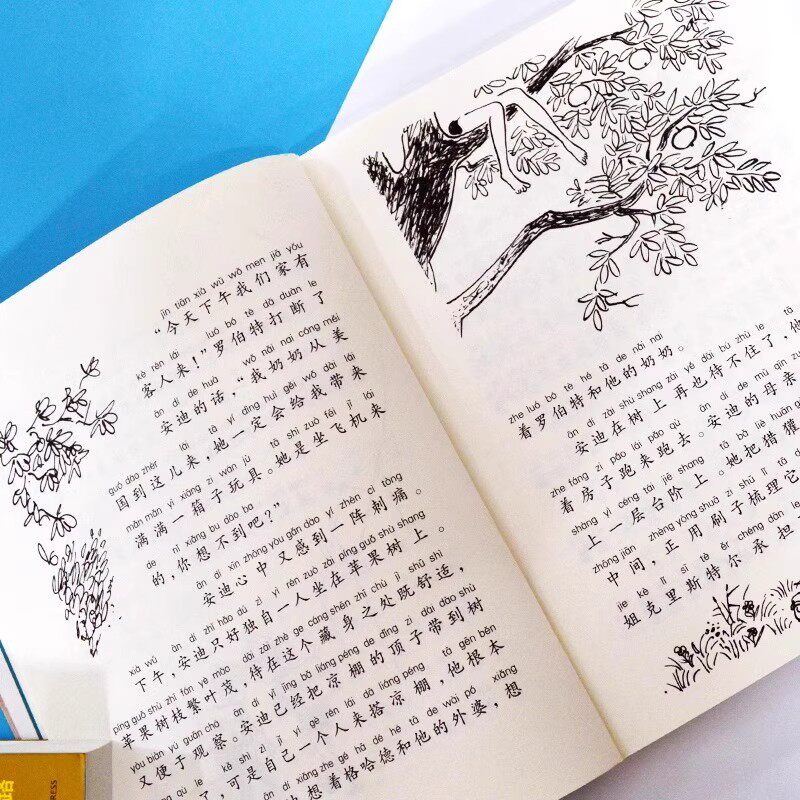 jīn tiān xià wǔ wǒ men jiā yǒu
“今天下午我们家有
kè rén lái luó bó tè dǎ duàn le
客人来！”罗伯特打断了
ān dí de huà wǒ nǎi nai cóng měi
安迪的话，“我奶奶从美
guó dào zhèr lái tā yí dìng huì gěi wǒ dài lái
国到这儿来，她一定会给我带来
mǎn mǎn yì xiāng zi wán jù tā shì zuò fēi jī lái
满满一箱子玩具。她是坐飞机来
de nǐ xiǎng bu dào ba
的，你想不到吧？”
ān dí xīn zhōng yòu gǎn dào yí zhèn cì tòng
安迪心中又感到一阵刺痛。
xià wǔ ān dí zhǐ hǎo dú zì yì rén zuò zài píng guǒ shù shang
下午，安迪只好独自一人坐在苹果树上。
píng guǒ shù zhī fán yè mào dāi zài zhè ge cáng shēn zhī chù jì shū shì
苹果树枝繁叶茂，待在这个藏身之处既舒适，
yòu biàn yú guān chá ān dí yǐ jīng bǎ liáng péng de dǐng zi dài dào shù
又便于观察。安迪已经把凉棚的顶子带到树
qù le kě shì zì jǐ yí gè rén lái dā liáng péng tā gēn běn
了，可是自己一个人来搭凉棚，他根本
ān dí xiǎng zhe gé hā dé hé tā de wài pó xiǎng
想着格哈德和他的外婆，想
zhe luó bó tè hé tā de nǎi nai
着罗伯特和他的奶奶。
ān dí zài shù shang zài yě dāi bú zhù le
安迪在树上再也待不住了，他
zhe fáng zi pǎo lái pǎo qù ān dí de mǔ qīn
着房子跑来跑去。安迪的母亲
shàng yì céng tái jiē shang tā bǎ liè huān
上一层台阶上。她把猎獾
zhōng jiān zhèng yòng shuā zi shū lǐ
中间，正用刷子梳理它
jiě kè lǐ sī tè ěr chéng dān
姐克里斯特尔承担